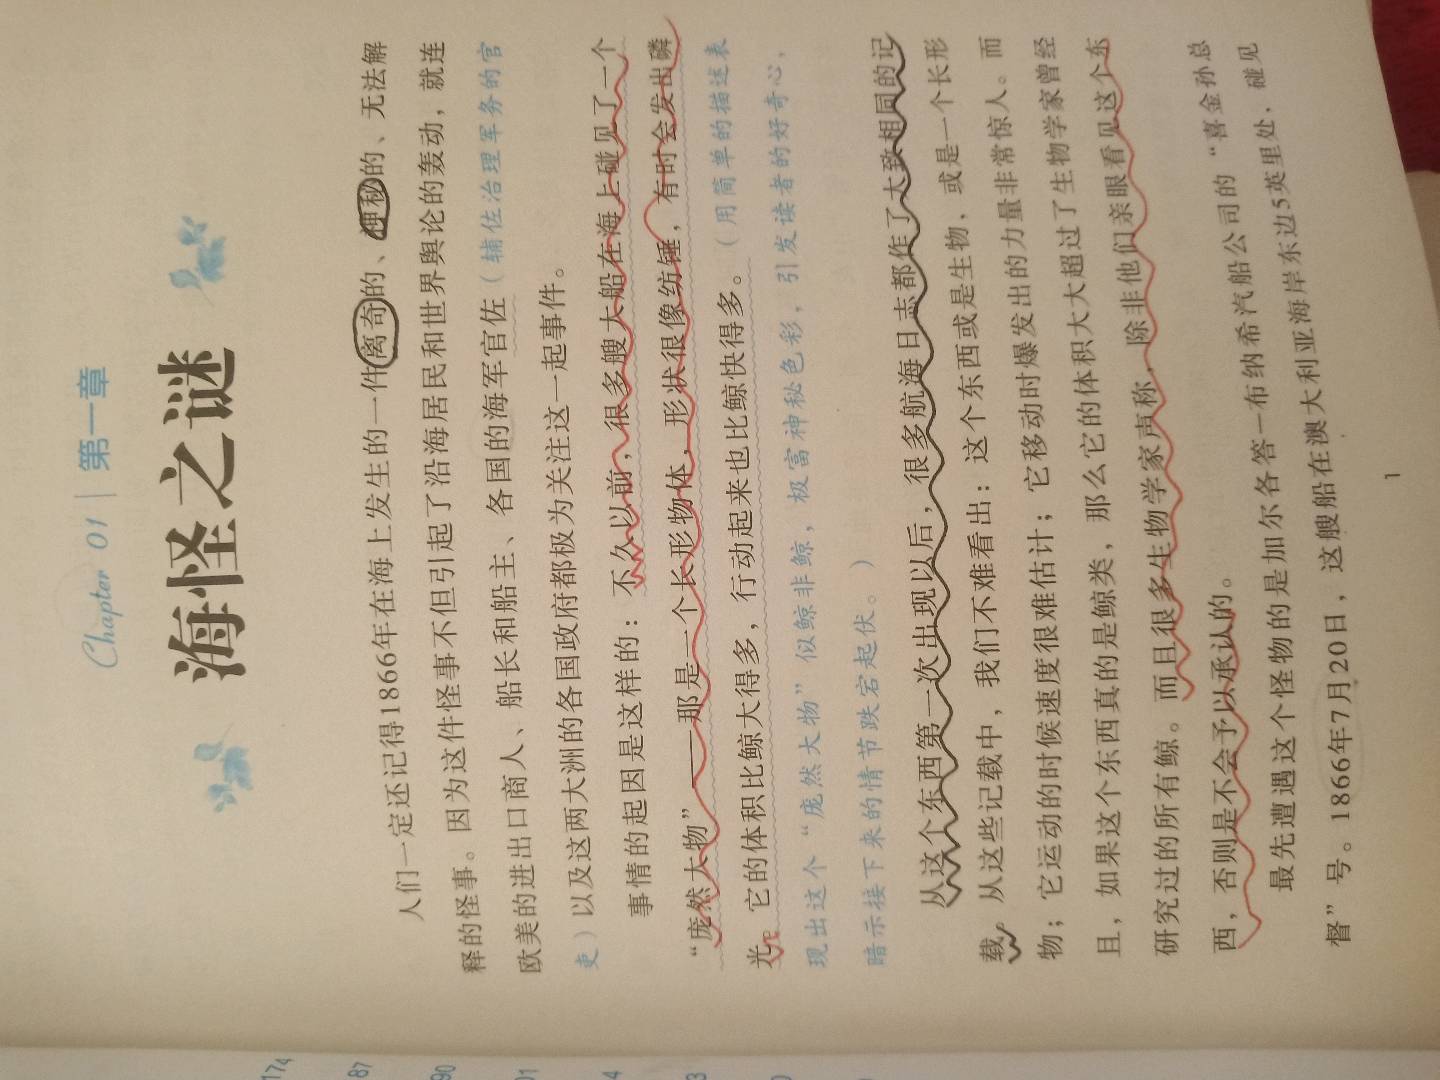 Chapter 01 | 第一章
海怪之谜
人们一定还记得1866年在海上发生的一件离奇的、神秘的、无法解
释的怪事。因为这件怪事不但引起了沿海居民和世界舆论的轰动，就连
欧美的进出口商人、船长和船主、各国的海军官佐（辅佐治理军务的官
吏）以及这两大洲的各国政府都极为关注这一起事件。
事情的起因是这样的：不久以前，很多艘大船在海上碰见了一个
“庞然大物”——那是一个长形物体，形状很像纺锤，有时会发出磷
光。它的体积比鲸大得多，行动起来也比鲸快得多。（用简单的描述表
现出这个“庞然大物”似鲸非鲸，极富神秘色彩，引发读者的好奇心，
暗示接下来的情节跌宕起伏。）
从这个东西第一次出现以后，很多航海日志都作了大致相同的记
载。从这些记载中，我们不难看出：这个东西或是生物，或是一个长形
物；它运动的时候速度很难估计；它移动时爆发出的力量非常惊人。而
且，如果这个东西真的是鲸类，那么它的体积大大超过了生物学家曾经
研究过的所有鲸。而且很多生物学家声称，除非他们亲眼看见这个东
西，否则是不会予以承认的。
最先遭遇这个怪物的是加尔各答—布纳希汽船公司的“喜金孙总
督”号。1866年7月20日，这艘船在澳大利亚海岸东边5英里处，碰见
1
174
87
90
01
4
3